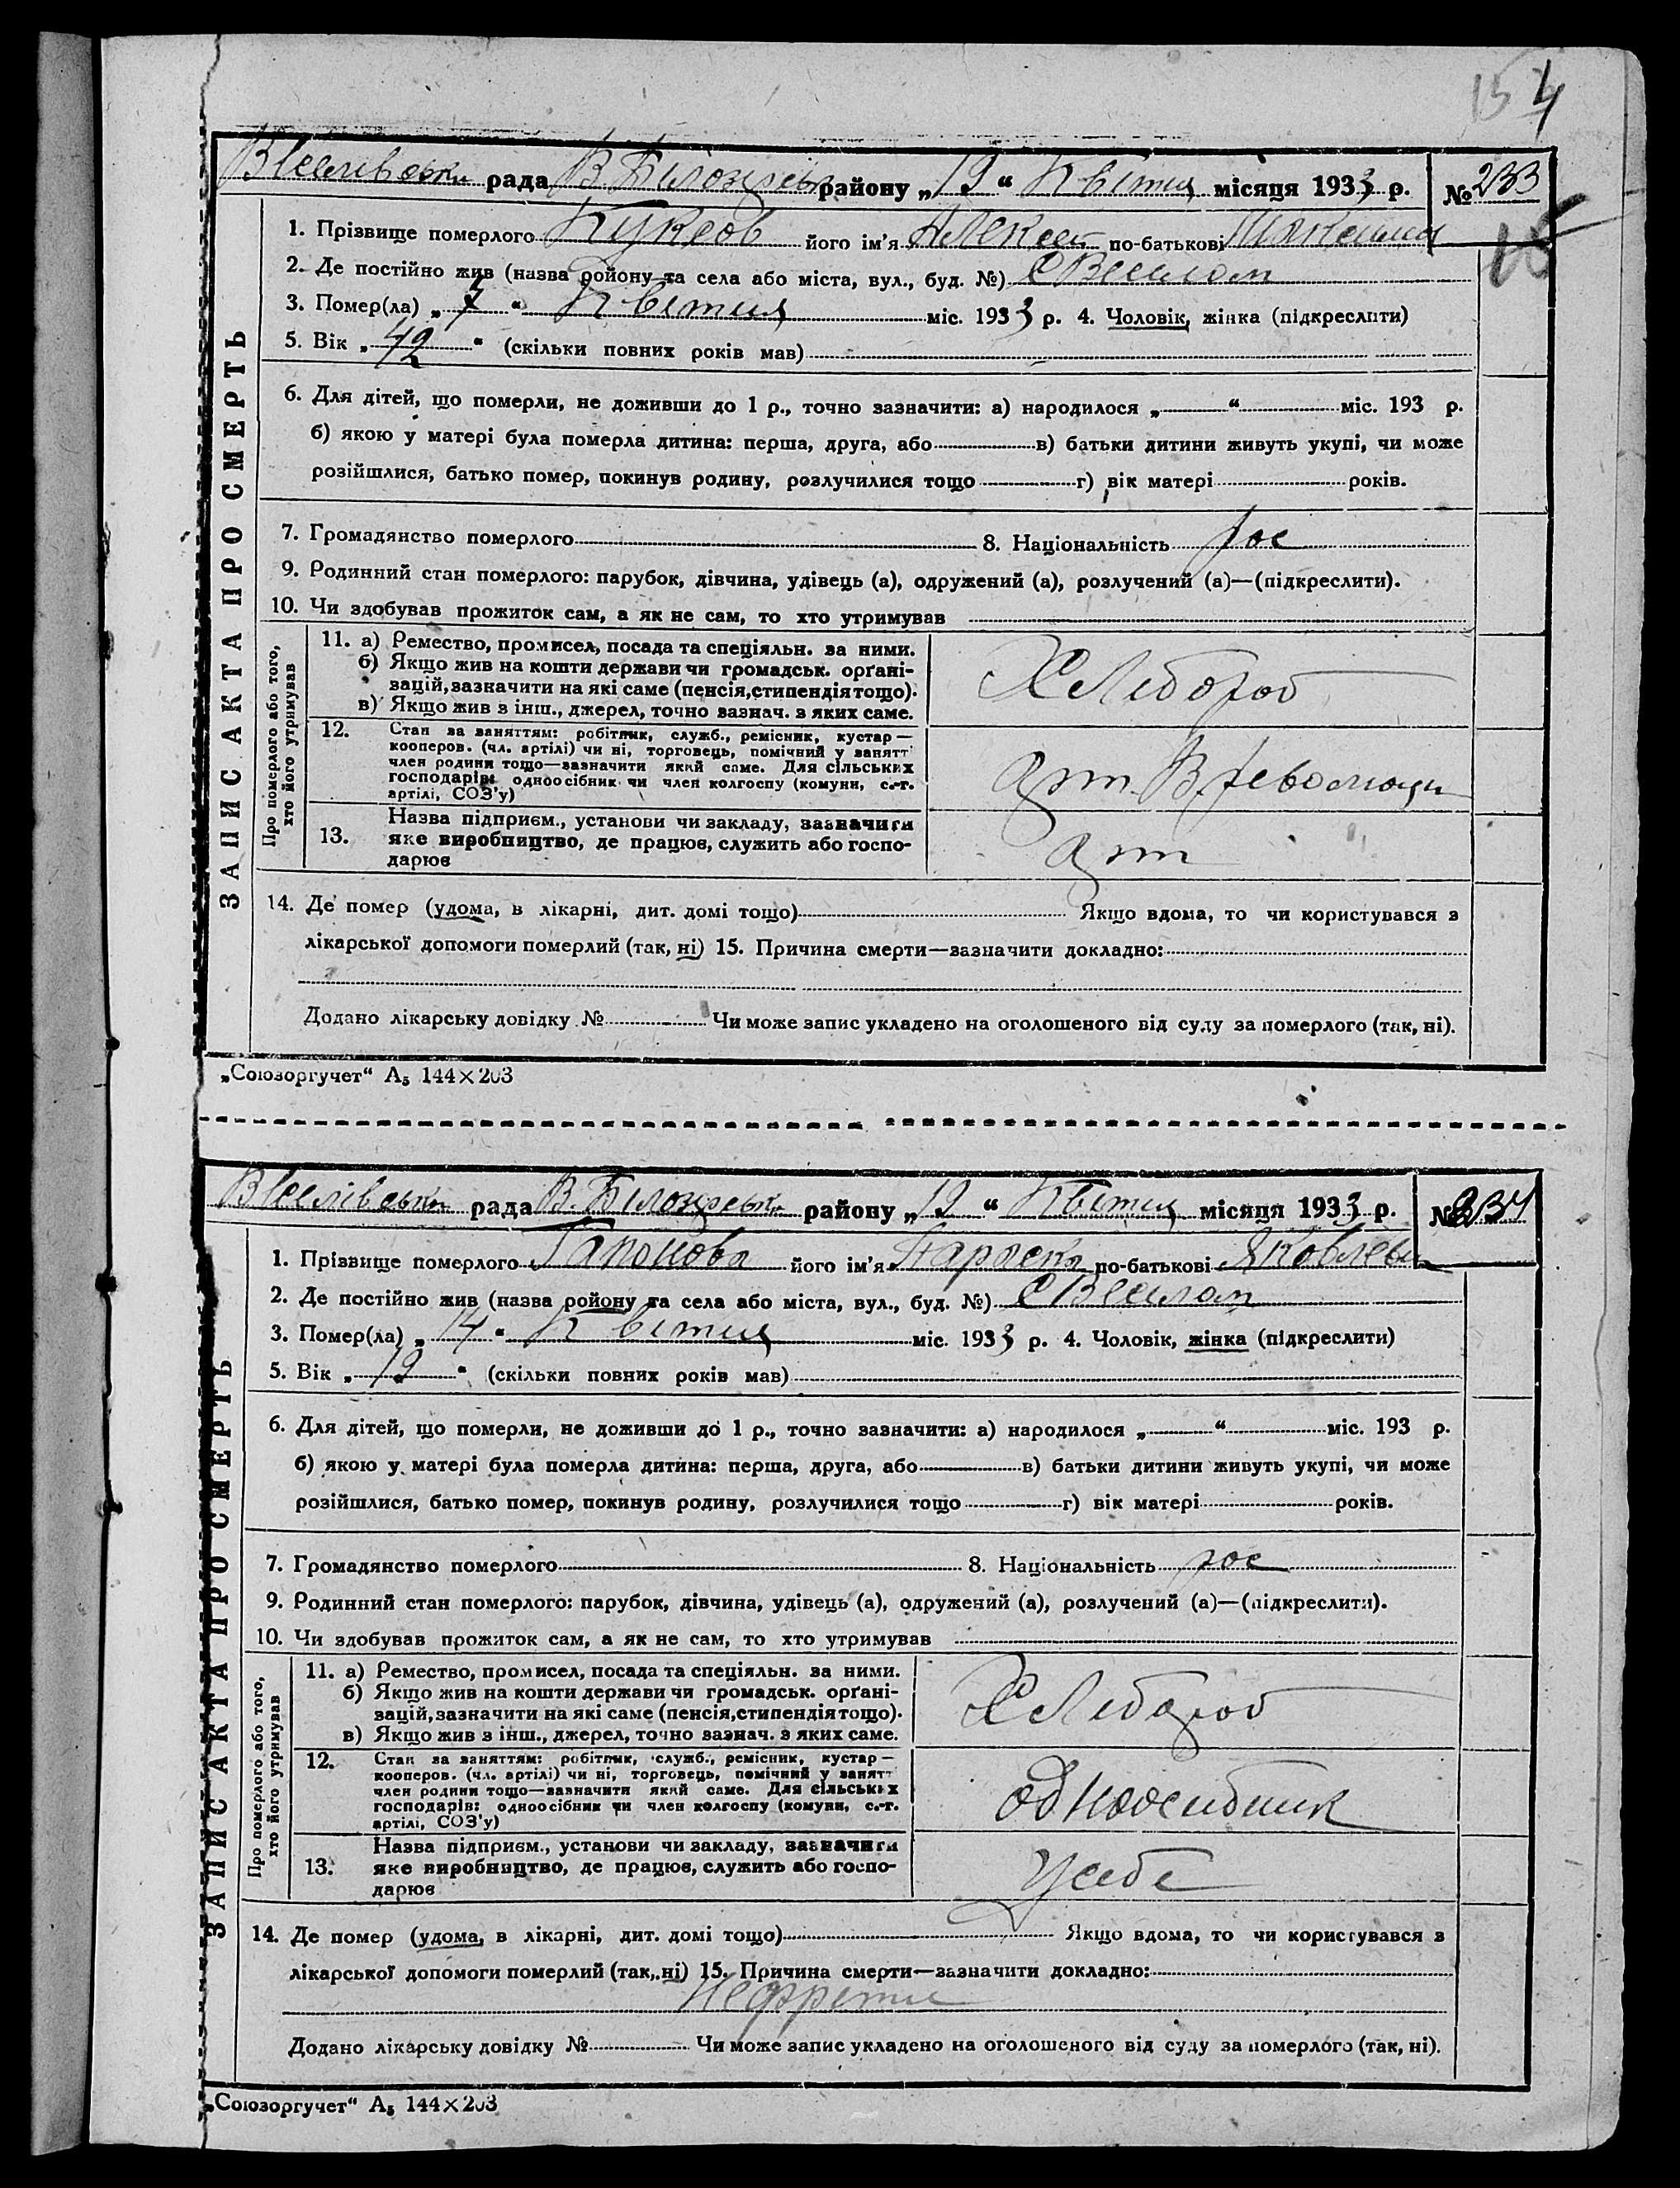 15 4
рада В. Білозірськ району „19“ Квітня місяця 1933 р. № 233
1. Прізвище померлого його ім'я Алексей по-батькові
2. Де постійно жив (назва району та села або міста, вул., буд. №)
3. Помер(ла) „7“ Квітня міс. 1933 р. 4. Чоловік, жінка (підкреслити)
5. Вік „42“ (скільки повних років мав)
6. Для дітей, що померли, не доживши до 1 р., точно зазначити: а) народилося „ “ міс. 193 р.
б) якою у матері була померла дитина: перша, друга, або в) батьки дитини живуть укупі, чи може
розійшлися, батько помер, покинув родину, розлучилися тощо г) вік матері років.
7. Громадянство померлого 8. Національність рос
9. Родинний стан померлого: парубок, дівчина, удівець (а), одружений (а), розлучений (а)—(підкреслити).
10. Чи здобував прожиток сам, а як не сам, то хто утримував
ЗАПИС АКТА ПРО СМЕРТЬ
Про померлого або того, хто його утримував
11. а) Ремество, промисел, посада та спеціяльн. за ними.
б) Якщо жив на кошти держави чи громадськ. орґані-
зацій, зазначити на які саме (пенсія, стипендія тощо).
в) Якщо жив з інш., джерел, точно зазнач. з яких саме.
Хлебороб
12. Стан за заняттям: робітник, служб., ремісник, кустар —
кооперов. (чл. артілі) чи ні, торговець, помічний у занятт
член родини тощо—зазначити який саме. Для сільських
господарів: одноосібник чи член колгоспу (комуни, с.-г.
артілі, СОЗ'у)
арт. В. Революци
13. Назва підприєм., установи чи закладу, зазначити
яке виробництво, де працює, служить або госпо-
дарює
арт
14. Де помер (удома, в лікарні, дит. домі тощо) Якщо вдома, то чи користувався з
лікарської допомоги померлий (так, ні) 15. Причина смерти—зазначити докладно:
Додано лікарську довідку № Чи може запис укладено на оголошеного від суду за померлого (так, ні).
„Союзоргучет“ А₅ 144×203
рада В. Білозірськ району „19“ Квітня місяця 1933 р. № 234
1. Прізвище померлого Гапонова його ім'я Параска по-батькові Яковлевн
2. Де постійно жив (назва району та села або міста, вул., буд. №)
3. Помер(ла) „14“ Квітня міс. 1933 р. 4. Чоловік, жінка (підкреслити)
5. Вік „19“ (скільки повних років мав)
6. Для дітей, що померли, не доживши до 1 р., точно зазначити: а) народилося „ “ міс. 193 р.
б) якою у матері була померла дитина: перша, друга, або в) батьки дитини живуть укупі, чи може
розійшлися, батько помер, покинув родину, розлучилися тощо г) вік матері років.
7. Громадянство померлого 8. Національність рос
9. Родинний стан померлого: парубок, дівчина, удівець (а), одружений (а), розлучений (а)—(підкреслити).
10. Чи здобував прожиток сам, а як не сам, то хто утримував
ЗАПИС АКТА ПРО СМЕРТЬ
Про померлого або того, хто його утримував
11. а) Ремество, промисел, посада та спеціяльн. за ними.
б) Якщо жив на кошти держави чи громадськ. орґані-
зацій, зазначити на які саме (пенсія, стипендія тощо).
в) Якщо жив з інш., джерел, точно зазнач. з яких саме.
Хлебороб
12. Стан за заняттям: робітник, служб., ремісник, кустар —
кооперов. (чл. артілі) чи ні, торговець, помічний у занятт
член родини тощо—зазначити який саме. Для сільських
господарів: одноосібник чи член колгоспу (комуни, с.-г.
артілі, СОЗ'у)
одноосибник
13. Назва підприєм., установи чи закладу, зазначити
яке виробництво, де працює, служить або госпо-
дарює
у себе
14. Де помер (удома, в лікарні, дит. домі тощо) Якщо вдома, то чи користувався з
лікарської допомоги померлий (так, ні) 15. Причина смерти—зазначити докладно:
Додано лікарську довідку № Чи може запис укладено на оголошеного від суду за померлого (так, ні).
„Союзоргучет“ А₅ 144×203